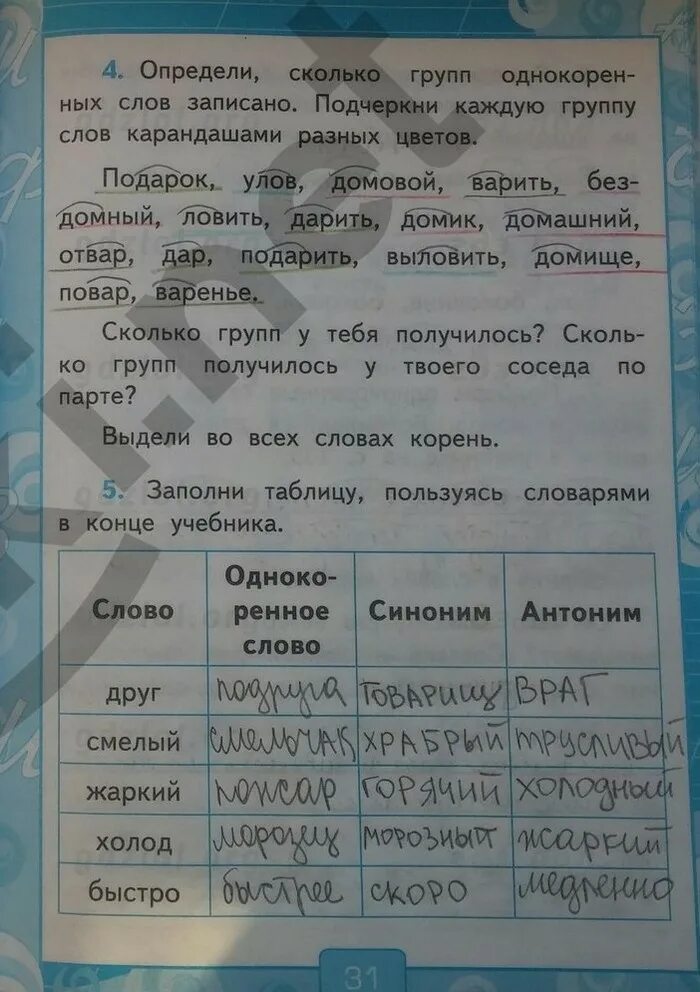 4. Определи, сколько групп однокорен-
ных слов записано. Подчеркни каждую группу
слов карандашами разных цветов.
Подарок, улов, домовой, варить, без-
домный, ловить, дарить, домик, домашний,
отвар, дар, подарить, выловить, домище,
повар, варенье.
Сколько групп у тебя получилось? Сколь-
ко групп получилось у твоего соседа по
парте?
Выдели во всех словах корень.
5. Заполни таблицу, пользуясь словарями
в конце учебника.
Слово Одноко- Синоним Антоним
ренное
слово
друг подруга ТОВАРИЩ ВРАГ
смелый смельчак ХРАБРЫЙ трусливый
жаркий пожар ГОРЯЧИЙ холодный
холод морозец морозный жаркий
быстро быстрее СКОРО медленно
31